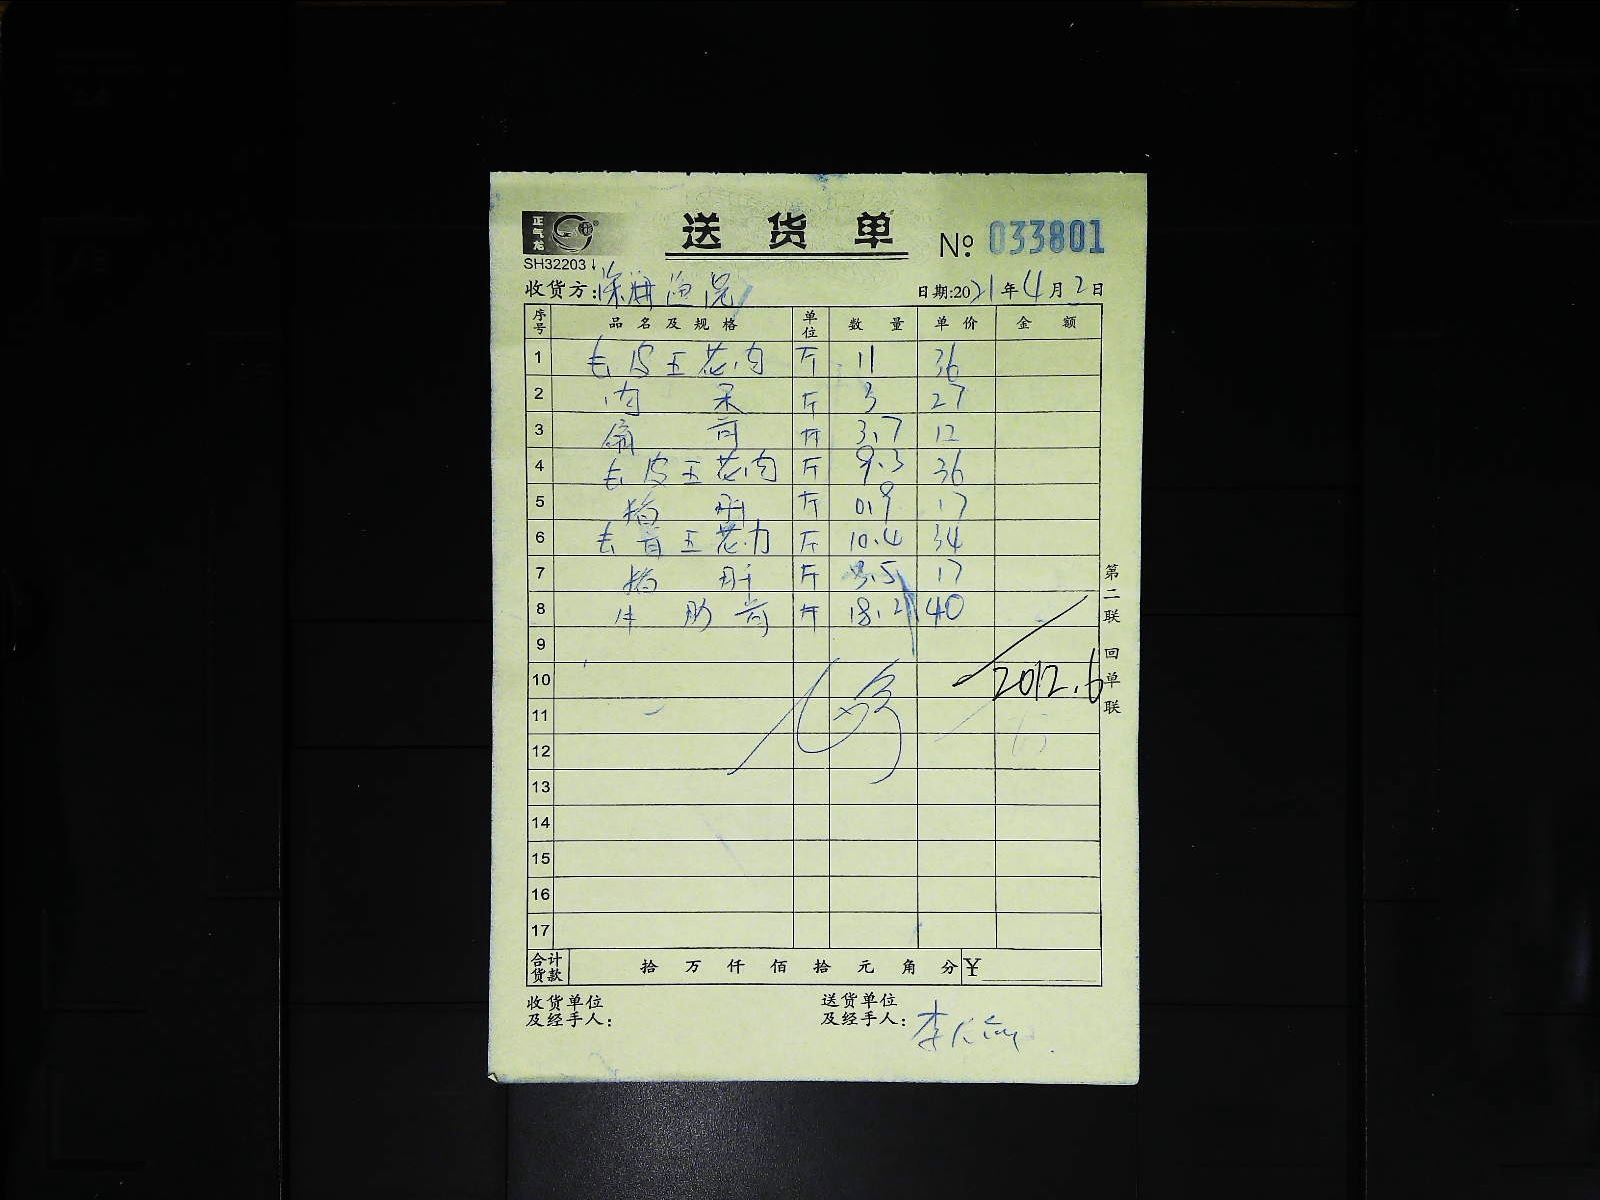 正气龙
送货单
No. 033801
SH32203
收货方:深海渔港
日期:2021年4月2日
序号 品名及规格 单位 数量 单价 金额
1 去皮五花肉 斤 11 36
2 肉 斤 3 27
3 斤 3.7 12
4 去皮五花肉 斤 9.3 36
5 猪肝 斤 0.9 17
6 去 五花肉 斤 10.4 34
7 猪肝 斤 3.5 17
8 牛肋 斤 18.2 40
9
10 2012.6
11
12
13
14
15
16
17
合计货款 拾 万 仟 佰 拾 元 角 分 ¥
收货单位及经手人:
送货单位及经手人:李
第二联 回单联